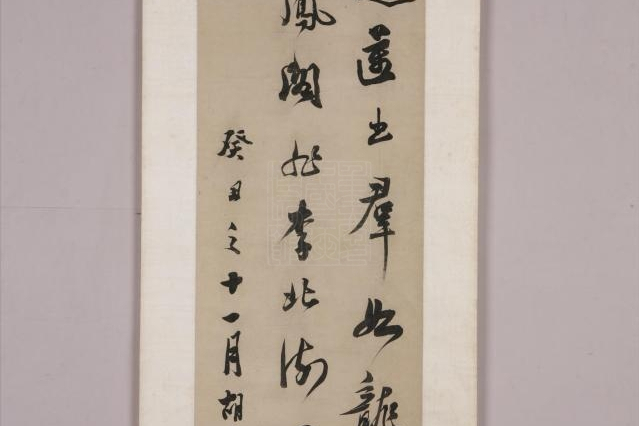 出羣如龍
鳳閣非李北海
癸丑之十一月胡